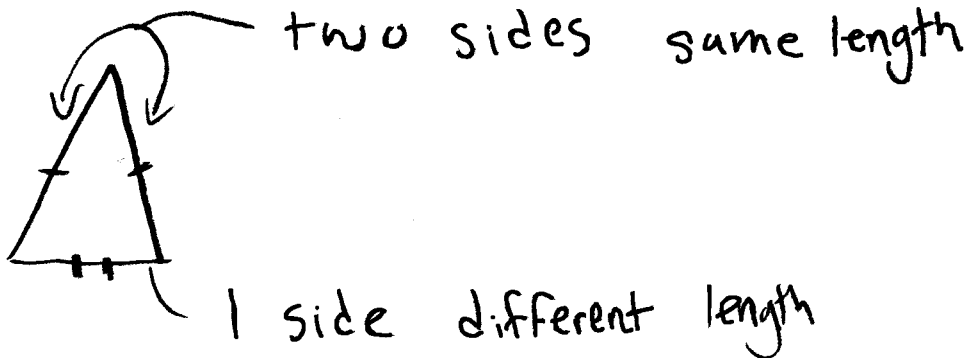 two sides same length
1 side different length